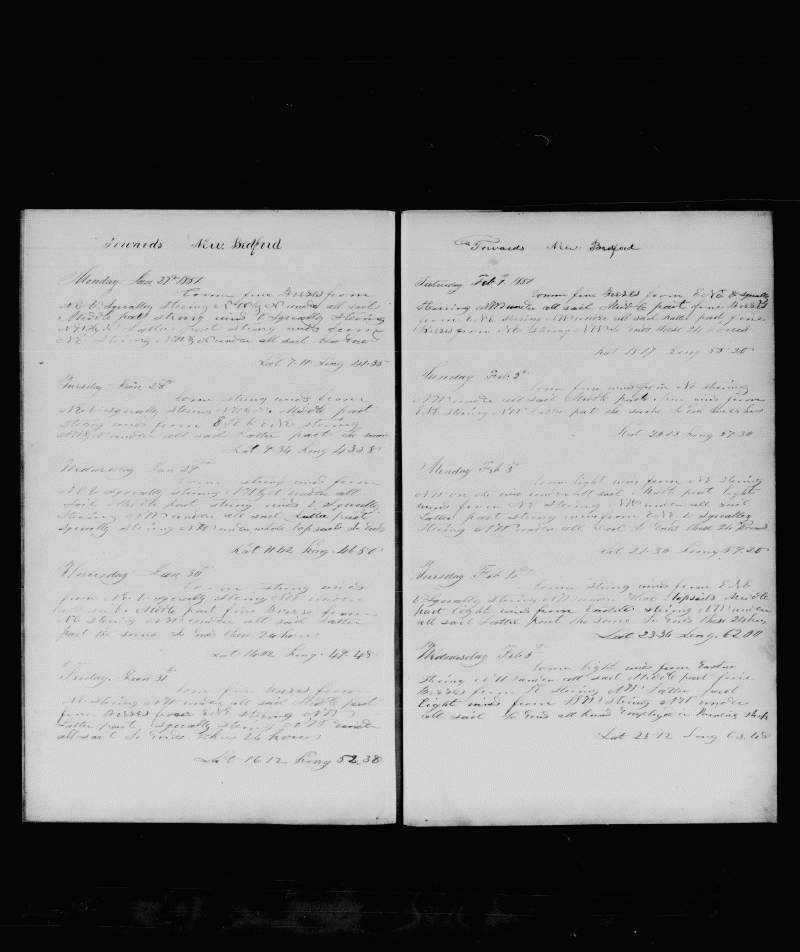 Towards New Bedford
Monday Jan 27th 1851
Comm fine Breezes from
NE & Squally Steering NW by N under all sail
Middle part strong wind & Squally Steering
NW by N Latter part strong winds from
NE Steering NW by N under all sail So Ends
Lat 7-11 Long 41-35
Tuesday Jan 28th
Comm strong winds from
NE & Squally Steering NW by N Middle part
Strong winds from ENE Steering
NW by N under all sail Latter part the same
Lat 9-34 Long 43-58
Wednesday Jan 29th
Comm strong winds from
NE & Squally Steering NW by N under all
Sail Middle part Strong winds & Squally
Steering NW under all sail Latter part
Squally Steering NW under whole topsails So Ends
Lat 11-42 Long 46-50
Thursday Jan 30th
Comm strong winds
from NE & Squally Steering NW under
all sail Middle part fine Breeze from
NE Steering NW under all sail Latter
part the same So Ends these 24 hours
Lat 14-02 Long 49-48
Friday Jan 31st
Comm fine Breezes from
NE Steering NW under all sail Middle part
fine Breezes from ENE Steering NW
Latter part Squally Steering NW under
all sail So Ends these 24 hours
Lat 16-12 Long 52-38
Towards New Bedford
Saturday Feb 1 1851
Comm fine Breezes from ENE & Squally
Steering NW under all sail Middle part fine Breezes
from ENE Steering NW under all sail Latter part fine
Breezes from NE Steering NW So Ends these 24 hours
Lat 18-17 Long 55-20
Sunday Feb 2d
Comm fine winds from NE Steering
NW under all sail Middle part fine winds from
ENE Steering NW Latter part the same So Ends these 24 hours
Lat 20-13 Long 57-30
Monday Feb 3d
Comm light winds from NE Steering
NW under all sail Middle part light
winds from NE Steering NW under all sail
Latter part Strong winds from NE & Squally
Steering NW under all sail So Ends these 24 hours
Lat 21-30 Long 59-20
Tuesday Feb 4th
Comm strong winds from ENE
& Squally Steering NW under topsails Middle
part light winds from Easterd Steering NW under
all sail Latter part the same So Ends these 24 hours
Lat 23-34 Long 62-00
Wednesday Feb 5th
Comm light winds from Easterd
Steering NW under all sail Middle part fine
Breezes from Steering NW Latter part
light winds from Steering NW under
all sail So Ends all hands Employed in
Lat 25-12 Long 63-48